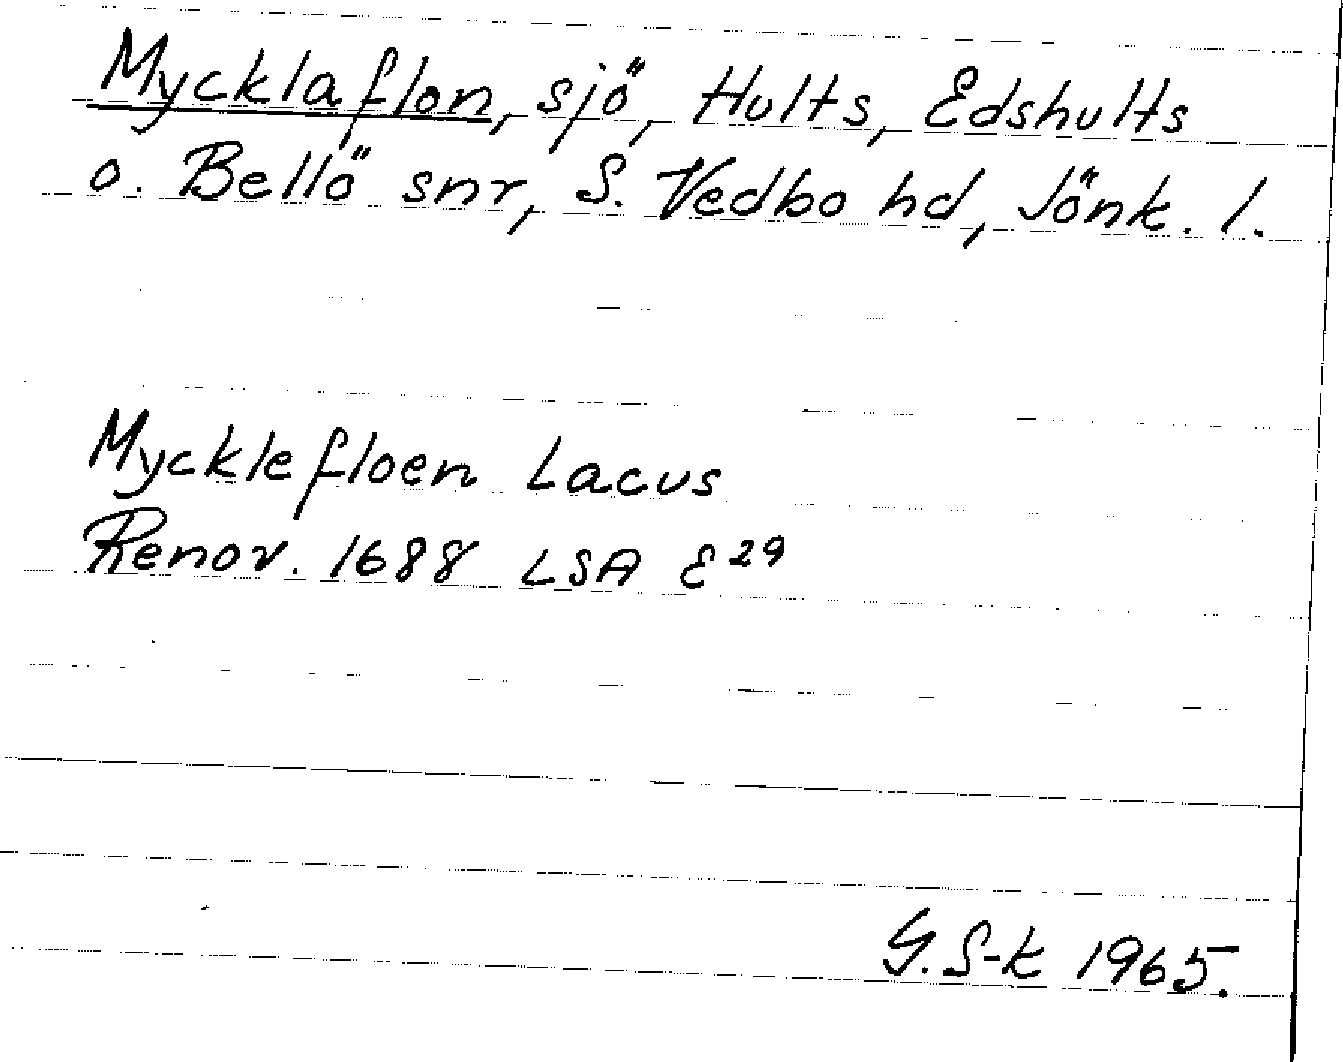 Mycklaflon, sjö, Hults, Edshults
o. Bellö snr, S. Vedbo hd, Jönk. l.
Mycklefloen Lacus
Renov. 1688 LSA E29
G. S-k 1965.